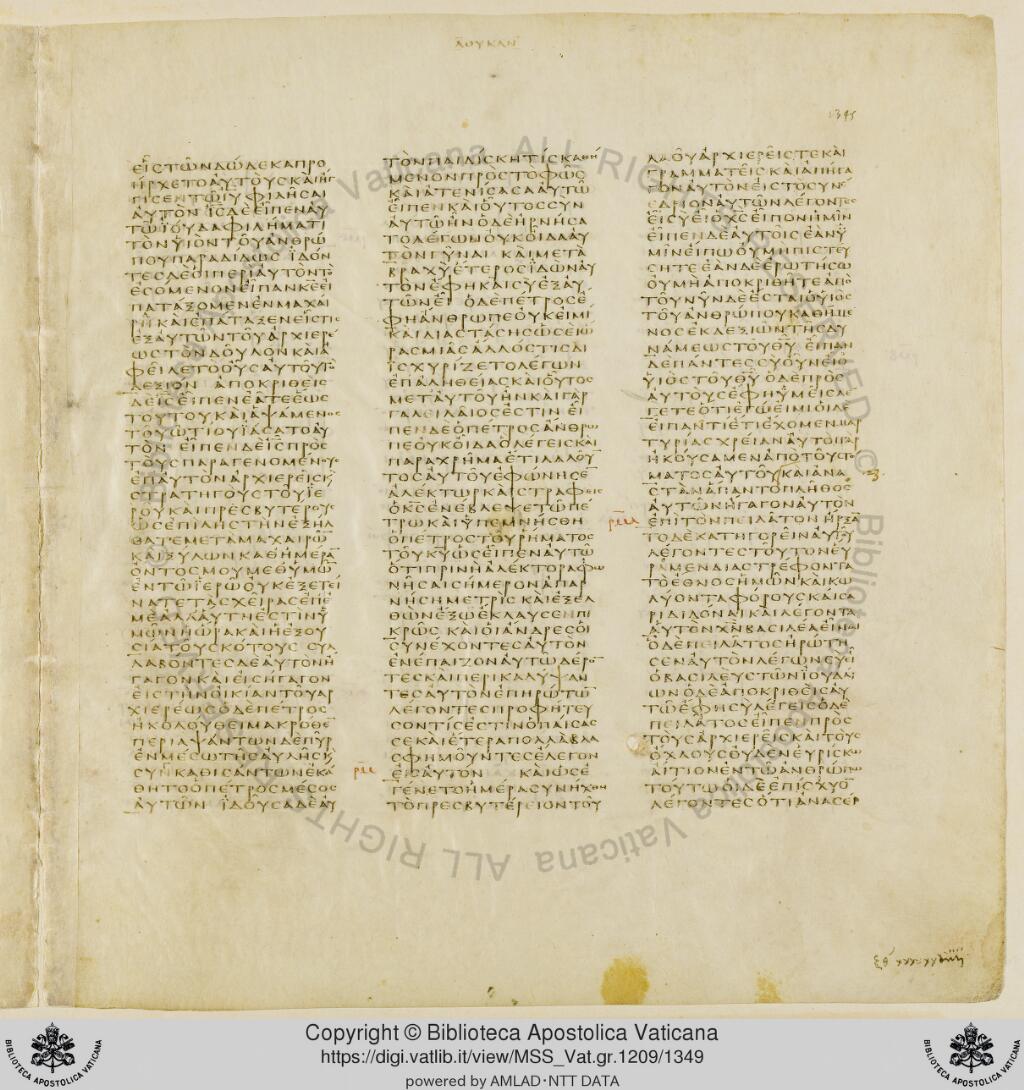 ΛΟΥΚΑΝ
1345
ΕΙϹΤΩΝΔΩΔΕΚΑΠΡΟ
ΗΡΧΕΤΟΑΥΤΟΥϹΚΑΙΗΓ
ΓΙϹΕΝΤΩΙΥΦΙΛΗϹΑΙ
ΑΥΤΟΝ ΙϹΔΕΕΙΠΕΝΑΥ
ΤΩΙΟΥΔΑΦΙΛΗΜΑΤΙ
ΤΟΝΥΙΟΝΤΟΥΑΝΘΡΩ
ΠΟΥΠΑΡΑΔΙΔΩϹ ΙΔΟΝ
ΤΕϹΔΕΟΙΠΕΡΙΑΥΤΟΝΤΟ
ΕϹΟΜΕΝΟΝΕΙΠΑΝΚΕΕΙ
ΠΑΤΑΞΟΜΕΝΕΝΜΑΧΑΙ
ΡΗΚΑΙΕΠΑΤΑΞΕΝΕΙϹΤΙϹ
ΕΞΑΥΤΩΝΤΟΥΑΡΧΙΕΡΕ
ΩϹΤΟΝΔΟΥΛΟΝΚΑΙΑ
ΦΕΙΛΕΤΟΟΥϹΑΥΤΟΥΤΟ
ΔΕΞΙΟΝ ΑΠΟΚΡΙΘΕΙϹ
ΔΕΙϹΕΙΠΕΝΕΑΤΕΕΩϹ
ΤΟΥΤΟΥΚΑΙΑΨΑΜΕΝΟϹ
ΤΟΥΩΤΙΟΥΙΑϹΑΤΟΑΥ
ΤΟΝ ΕΙΠΕΝΔΕΙϹΠΡΟϹ
ΤΟΥϹΠΑΡΑΓΕΝΟΜΕΝΟΥϹ
ΕΠΑΥΤΟΝΑΡΧΙΕΡΕΙϹΚ
ϹΤΡΑΤΗΓΟΥϹΤΟΥΙΕ
ΡΟΥΚΑΙΠΡΕϹΒΥΤΕΡΟΥϹ
ΩϹΕΠΙΛΗϹΤΗΝΕΞΗΛ
ΘΑΤΕΜΕΤΑΜΑΧΑΙΡΩ̅
ΚΑΙΞΥΛΩΝΚΑΘΗΜΕΡΑ̅
ΟΝΤΟϹΜΟΥΜΕΘΥΜΩ̅
ΕΝΤΩΙΕΡΩΟΥΚΕΞΕΤΕΙ
ΝΑΤΕΤΑϹΧΕΙΡΑϹΕΠΕ
ΜΕΑΛΛΑΥΤΗΕϹΤΙΝΥ
ΜΩΝΗΩΡΑΚΑΙΗΕΞΟΥ
ϹΙΑΤΟΥϹΚΟΤΟΥϹ ϹΥΛ
ΛΑΒΟΝΤΕϹΔΕΑΥΤΟΝΗ
ΓΑΓΟΝΚΑΙΕΙϹΗΓΑΓΟΝ
ΕΙϹΤΗΝΟΙΚΙΑΝΤΟΥΑΡ
ΧΙΕΡΕΩϹΟΔΕΠΕΤΡΟϹ
ΗΚΟΛΟΥΘΕΙΜΑΚΡΟΘΕ̅
ΠΕΡΙΑΨΑΝΤΩΝΔΕΠΥΡ
ΕΝΜΕϹΩΤΗϹΑΥΛΗϹΚ
ϹΥΝΚΑΘΙϹΑΝΤΩΝΕΚΑ
ΘΗΤΟΟΠΕΤΡΟϹΜΕϹΟϹ
ΑΥΤΩΝ ΙΔΟΥϹΑΔΕΑΥ
ΤΟΝΠΑΙΔΙϹΚΗΤΙϹΚΑΘΗ
ΜΕΝΟΝΠΡΟϹΤΟΦΩϹ
ΚΑΙΑΤΕΝΙϹΑϹΑΑΥΤΩ
ΕΙΠΕΝΚΑΙΟΥΤΟϹϹΥΝ
ΑΥΤΩΗΝΟΔΕΗΡΝΗϹΑ
ΤΟΛΕΓΩΝΟΥΚΟΙΔΑΑΥ
ΤΟΝΓΥΝΑΙ ΚΑΙΜΕΤΑ
ΒΡΑΧΥΕΤΕΡΟϹΙΔΩΝΑΥ
ΤΟΝΕΦΗΚΑΙϹΥΕΞΑΥ
ΤΩΝΕΙ ΟΔΕΠΕΤΡΟϹΕ
ΦΗΑΝΘΡΩΠΕΟΥΚΕΙΜΙ
ΚΑΙΔΙΑϹΤΑϹΗϹΩϹΕΙΩ
ΡΑϹΜΙΑϹΑΛΛΟϹΤΙϹΔΙ
ΙϹΧΥΡΙΖΕΤΟΛΕΓΩΝ
ΕΠΑΛΗΘΕΙΑϹΚΑΙΟΥΤΟϹ
ΜΕΤΑΥΤΟΥΗΝΚΑΙΓΑΡ
ΓΑΛΕΙΛΑΙΟϹΕϹΤΙΝ ΕΙ
ΠΕΝΔΕΟΠΕΤΡΟϹΑΝΘΡΩ
ΠΕΟΥΚΟΙΔΑΟΛΕΓΕΙϹΚΑΙ
ΠΑΡΑΧΡΗΜΑΕΤΙΛΑΛΟΥ̅
ΤΟϹΑΥΤΟΥΕΦΩΝΗϹΕ̅
ΑΛΕΚΤΩΡΚΑΙϹΤΡΑΦΕΙϹ
ΟΚϹΕΝΕΒΛΕΨΕΤΩΠΕ
ΤΡΩΚΑΙΥΠΕΜΝΗϹΘΗ
ΟΠΕΤΡΟϹΤΟΥΡΗΜΑΤΟϹ
ΤΟΥΚΥΩϹΕΙΠΕΝΑΥΤΩ
ΟΤΙΠΡΙΝΗΑΛΕΚΤΟΡΑΦΩ
ΝΗϹΑΙϹΗΜΕΡΟΝΑΠΑΡ
ΝΗϹΗΜΕΤΡΙϹΚΑΙΕΞΕΛ
ΘΩΝΕΞΩΕΚΛΑΥϹΕΝΠΙ
ΚΡΩϹ ΚΑΙΟΙΑΝΔΡΕϹΟΙ
ϹΥΝΕΧΟΝΤΕϹΑΥΤΟΝ
ΕΝΕΠΑΙΖΟΝΑΥΤΩΔΕΡΟ̅
ΤΕϹΚΑΙΠΕΡΙΚΑΛΥΨΑΝ
ΤΕϹΑΥΤΟΝΕΠΗΡΩΤΩ̅
ΛΕΓΟΝΤΕϹΠΡΟΦΗΤΕΥ
ϹΟΝΤΙϹΕϹΤΙΝΟΠΑΙϹΑϹ
ϹΕΚΑΙΕΤΕΡΑΠΟΛΛΑΒΛΑ
ϹΦΗΜΟΥΝΤΕϹΕΛΕΓΟΝ
ΕΙϹΑΥΤΟΝ ΚΑΙΩϹΕ
ΓΕΝΕΤΟΗΜΕΡΑϹΥΝΗΧΘΗ
ΤΟΠΡΕϹΒΥΤΕΡΕΙΟΝΤΟΥ
ΛΑΟΥΑΡΧΙΕΡΕΙϹΤΕΚΑΙ
ΓΡΑΜΜΑΤΕΙϹΚΑΙΑΠΗΓΑ
ΓΟΝΑΥΤΟΝΕΙϹΤΟϹΥΝΕ
ΔΡΙΟΝΑΥΤΩΝΛΕΓΟΝΤΕϹ
ΕΙϹΥΕΙΟΧϹΕΙΠΟΝΗΜΙΝ
ΕΙΠΕΝΔΕΑΥΤΟΙϹΕΑΝΥ
ΜΙΝΕΙΠΩΟΥΜΗΠΙϹΤΕΥ
ϹΗΤΕΕΑΝΔΕΕΡΩΤΗϹΩ
ΟΥΜΗΑΠΟΚΡΙΘΗΤΕΑΠΟ
ΤΟΥΝΥΝΔΕΕϹΤΑΙΟΥΙΟϹ
ΤΟΥΑΝΘΡΩΠΟΥΚΑΘΗΜΕ
ΝΟϹΕΚΔΕΞΙΩΝΤΗϹΔΥ
ΝΑΜΕΩϹΤΟΥΘΥ ΕΙΠΑΝ
ΔΕΠΑΝΤΕϹϹΥΟΥΝΕΙΟ
ΥΙΟϹΤΟΥΘΥ ΟΔΕΠΡΟϹ
ΑΥΤΟΥϹΕΦΗΥΜΕΙϹΛΕ
ΓΕΤΕΟΤΙΕΓΩΕΙΜΙΟΙΔΕ
ΕΙΠΑΝΤΙΕΤΙΕΧΟΜΕΝΜΑΡ
ΤΥΡΙΑϹΧΡΕΙΑΝΑΥΤΟΙΓΑΡ
ΗΚΟΥϹΑΜΕΝΑΠΟΤΟΥϹΤΟ
ΜΑΤΟϹΑΥΤΟΥΚΑΙΑΝΑ
ϹΤΑΝΑΠΑΝΤΟΠΛΗΘΟϹ
ΑΥΤΩΝΗΓΑΓΟΝΑΥΤΟΝ
ΕΠΙΤΟΝΠΕΙΛΑΤΟΝΗΡΞΑ̅
ΤΟΔΕΚΑΤΗΓΟΡΕΙΝΑΥΤΟΥ
ΛΕΓΟΝΤΕϹΤΟΥΤΟΝΕΥ
ΡΑΜΕΝΔΙΑϹΤΡΕΦΟΝΤΑ
ΤΟΕΘΝΟϹΗΜΩΝΚΑΙΚΩ
ΛΥΟΝΤΑΦΟΡΟΥϹΚΑΙϹΑ
ΡΙΔΙΔΟΝΑΙΚΑΙΛΕΓΟΝΤΑ
ΑΥΤΟΝΧΝΒΑϹΙΛΕΑΕΙΝΑΙ
ΟΔΕΠΕΙΛΑΤΟϹΗΡΩΤΗ
ϹΕΝΑΥΤΟΝΛΕΓΩΝϹΥΕΙ
ΟΒΑϹΙΛΕΥϹΤΩΝΙΟΥΔΑΙ
ΩΝΟΔΕΑΠΟΚΡΙΘΕΙϹΑΥ
ΤΩΕΦΗϹΥΛΕΓΕΙϹΟΔΕ
ΠΕΙΛΑΤΟϹΕΙΠΕΝΠΡΟϹ
ΤΟΥϹΑΡΧΙΕΡΕΙϹΚΑΙΤΟΥϹ
ΟΧΛΟΥϹΟΥΔΕΝΕΥΡΙϹΚΩ
ΑΙΤΙΟΝΕΝΤΩΑΝΘΡΩΠΩ
ΤΟΥΤΩΟΙΔΕΕΠΙϹΧΥΟ̅
ΛΕΓΟΝΤΕϹΟΤΙΑΝΑϹΕΙ
Copyright © Biblioteca Apostolica Vaticana
https://digi.vatlib.it/view/MSS_Vat.gr.1209/1349
powered by AMLAD・NTT DATA